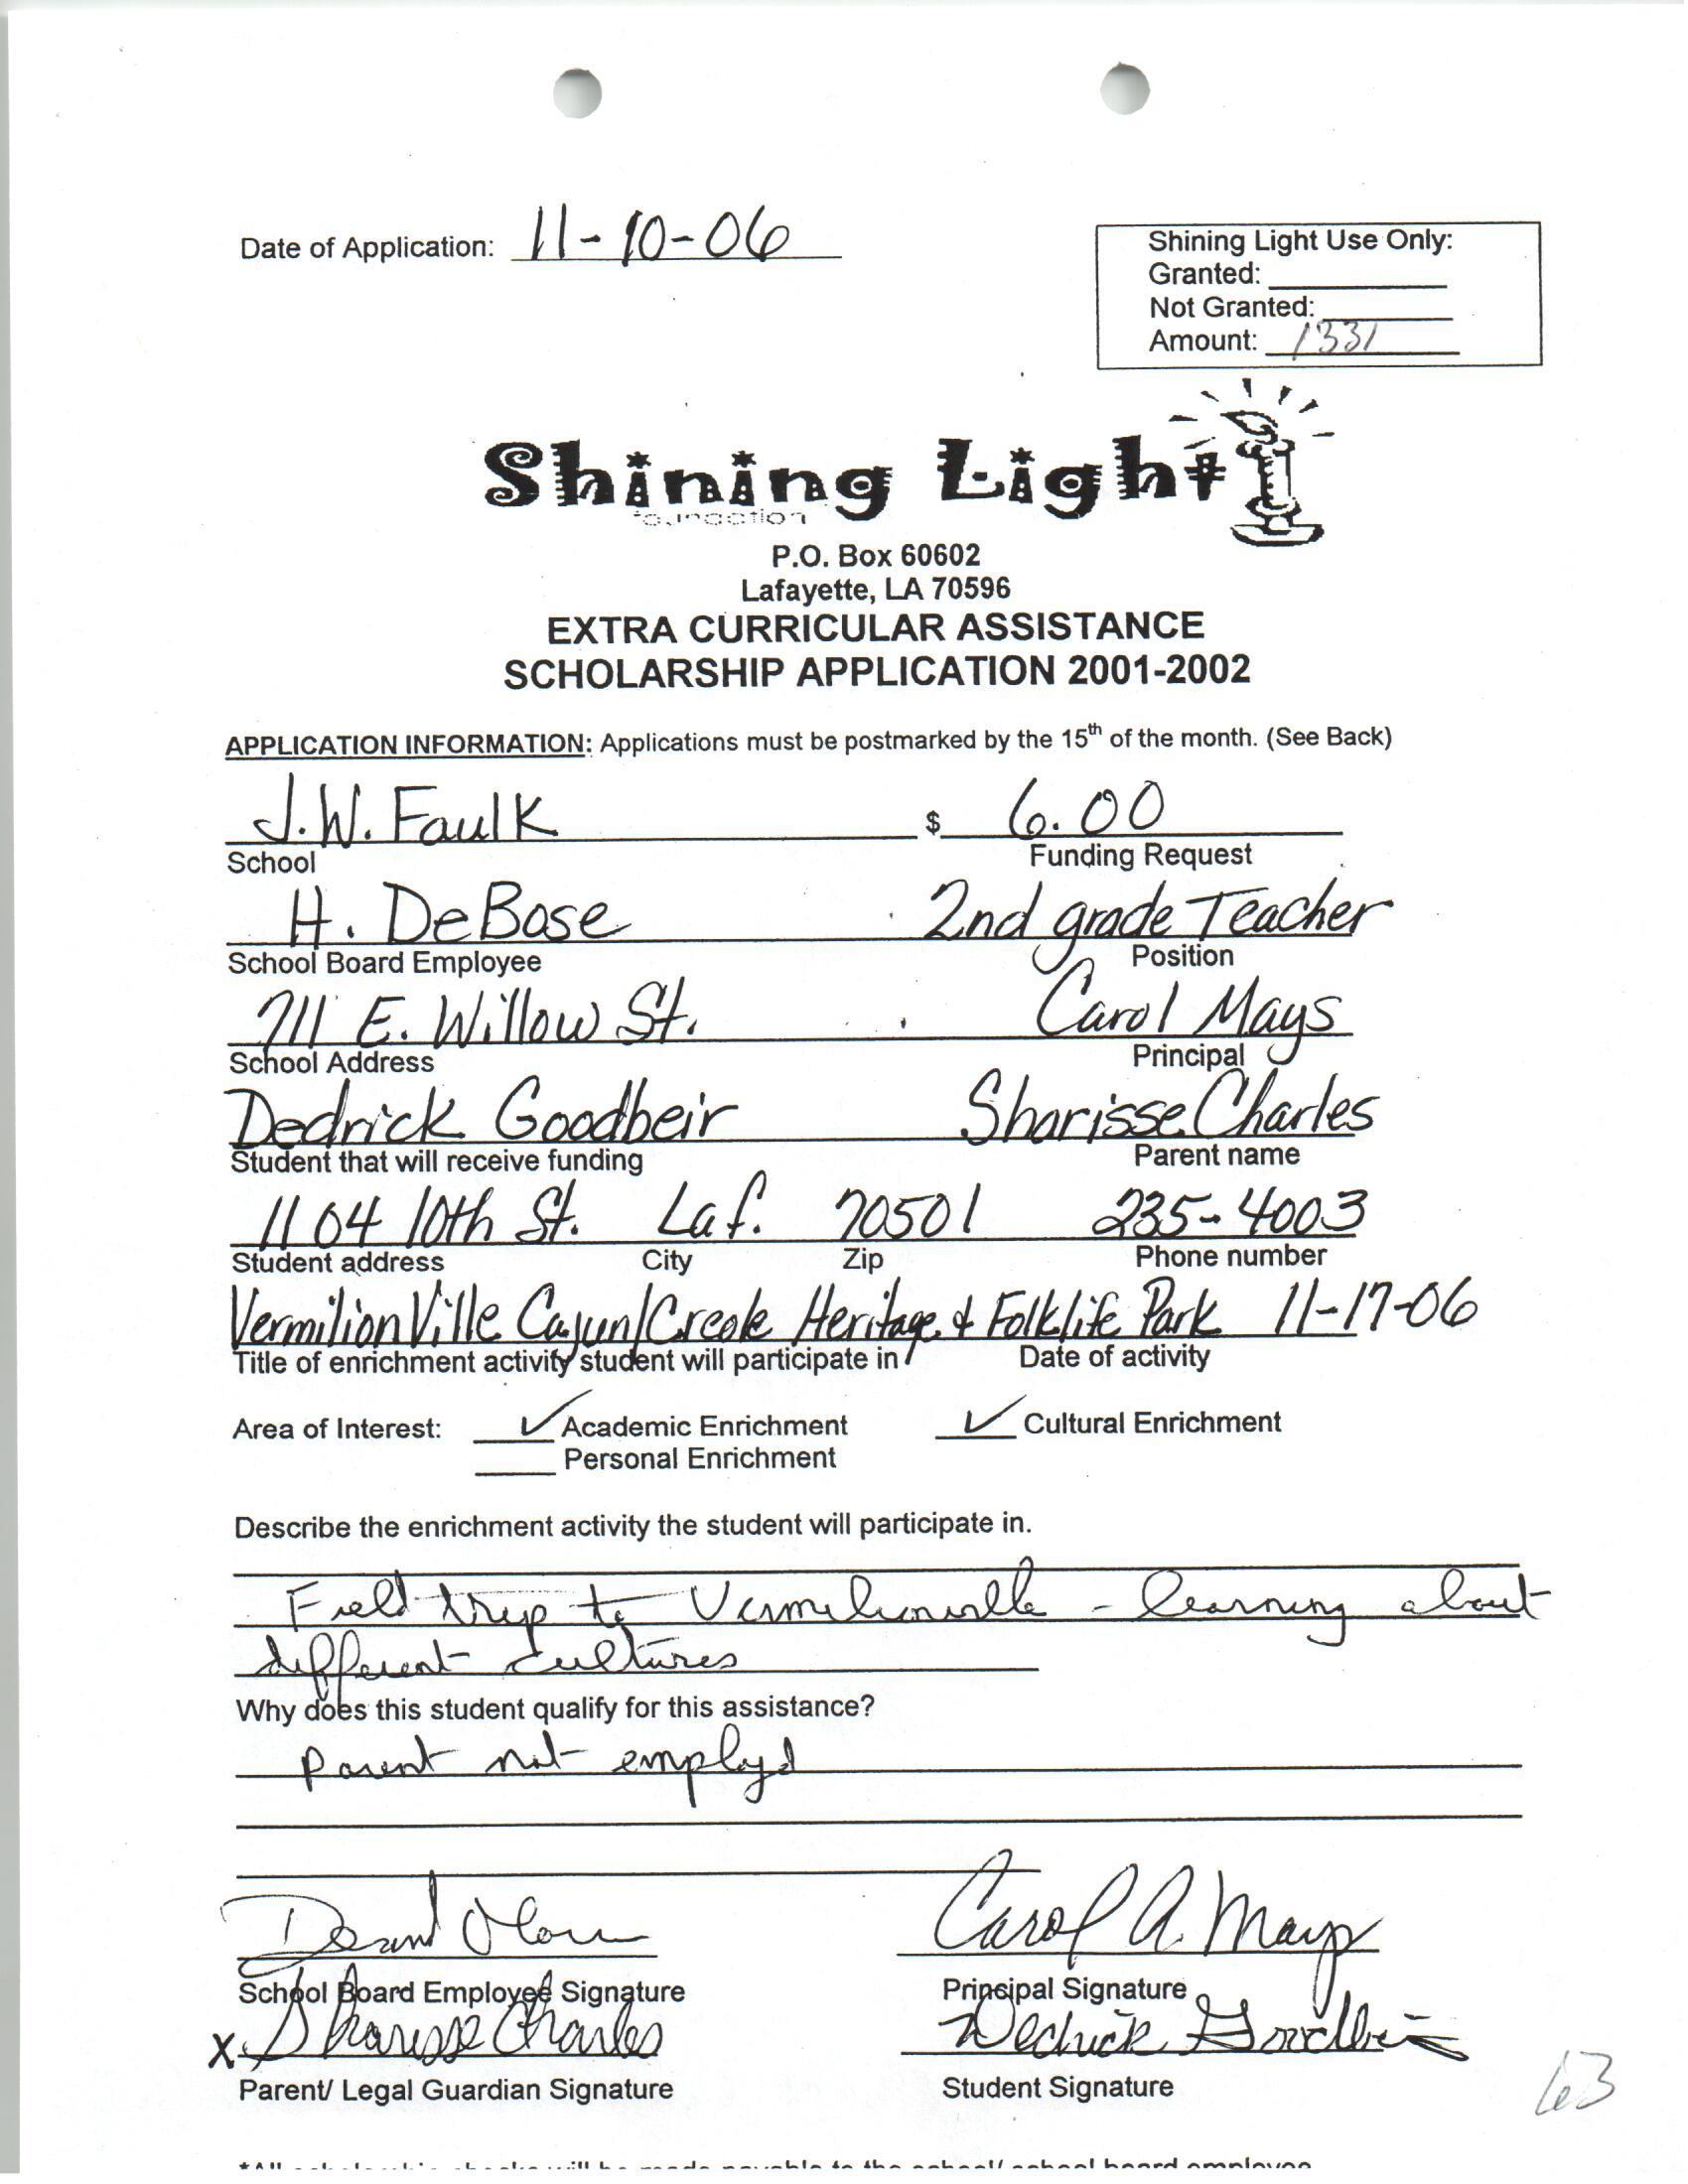 Date of Application: 11-10-06
Shining Light Use Only:
Granted:
Not Granted:
Amount: 1331
Shining Light
foundation
P.O. Box 60602
Lafayette, LA 70596
EXTRA CURRICULAR ASSISTANCE
SCHOLARSHIP APPLICATION 2001-2002
APPLICATION INFORMATION: Applications must be postmarked by the 15th of the month. (See Back)
J.W. Faulk $ 6.00
School Funding Request
H. DeBose 2nd grade Teacher
School Board Employee Position
711 E. Willow St. Carol Mays
School Address Principal
Dedrick Goodbeir Sharisse Charles
Student that will receive funding Parent name
1104 10th St. Laf. 70501 235-4003
Student address City Zip Phone number
VermilionVille Cajun/Creole Heritage & Folklife Park 11-17-06
Title of enrichment activity student will participate in Date of activity
Area of Interest: ✓ Academic Enrichment ✓ Cultural Enrichment
Personal Enrichment
Describe the enrichment activity the student will participate in.
Field trip to Vermilionville - learning about
different cultures
Why does this student qualify for this assistance?
Parent not employd
Carol A. Mays
School Board Employee Signature Principal Signature
X Sharisse Charles Dedrick Goodbeir
Parent/ Legal Guardian Signature Student Signature
63
*All scholarship checks will be made payable to the school/ school board employee